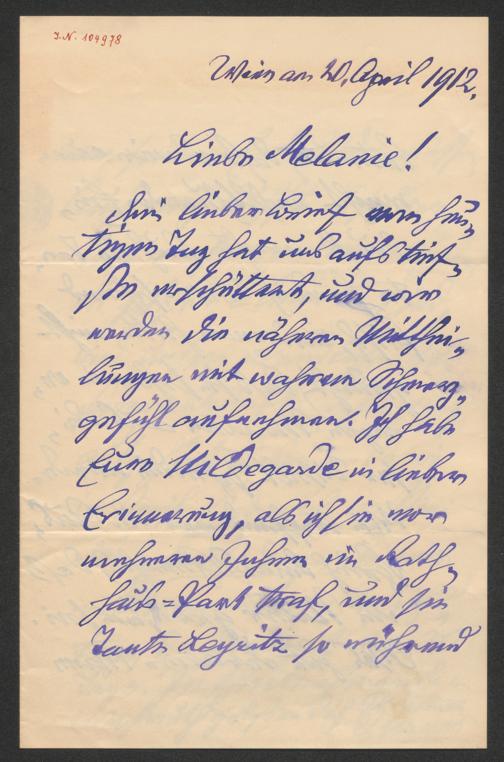 I.N. 109978
Wien am 20. April 1912.
Liebe Melanie!
Dein lieber Brief vom heu-
tigen Tag hat uns aufs tief-
ste erschüttert, und wir
werden die näheren Mitthei-
lungen mit wahrem Schmerz-
gefühl aufnehmen. Ich habe
Eure Hildegarde in lieber
Erinnerung, als ich sie vor
mehreren Jahren im Rath-
haus=Park traf, und sie
Tante Leyritz so während